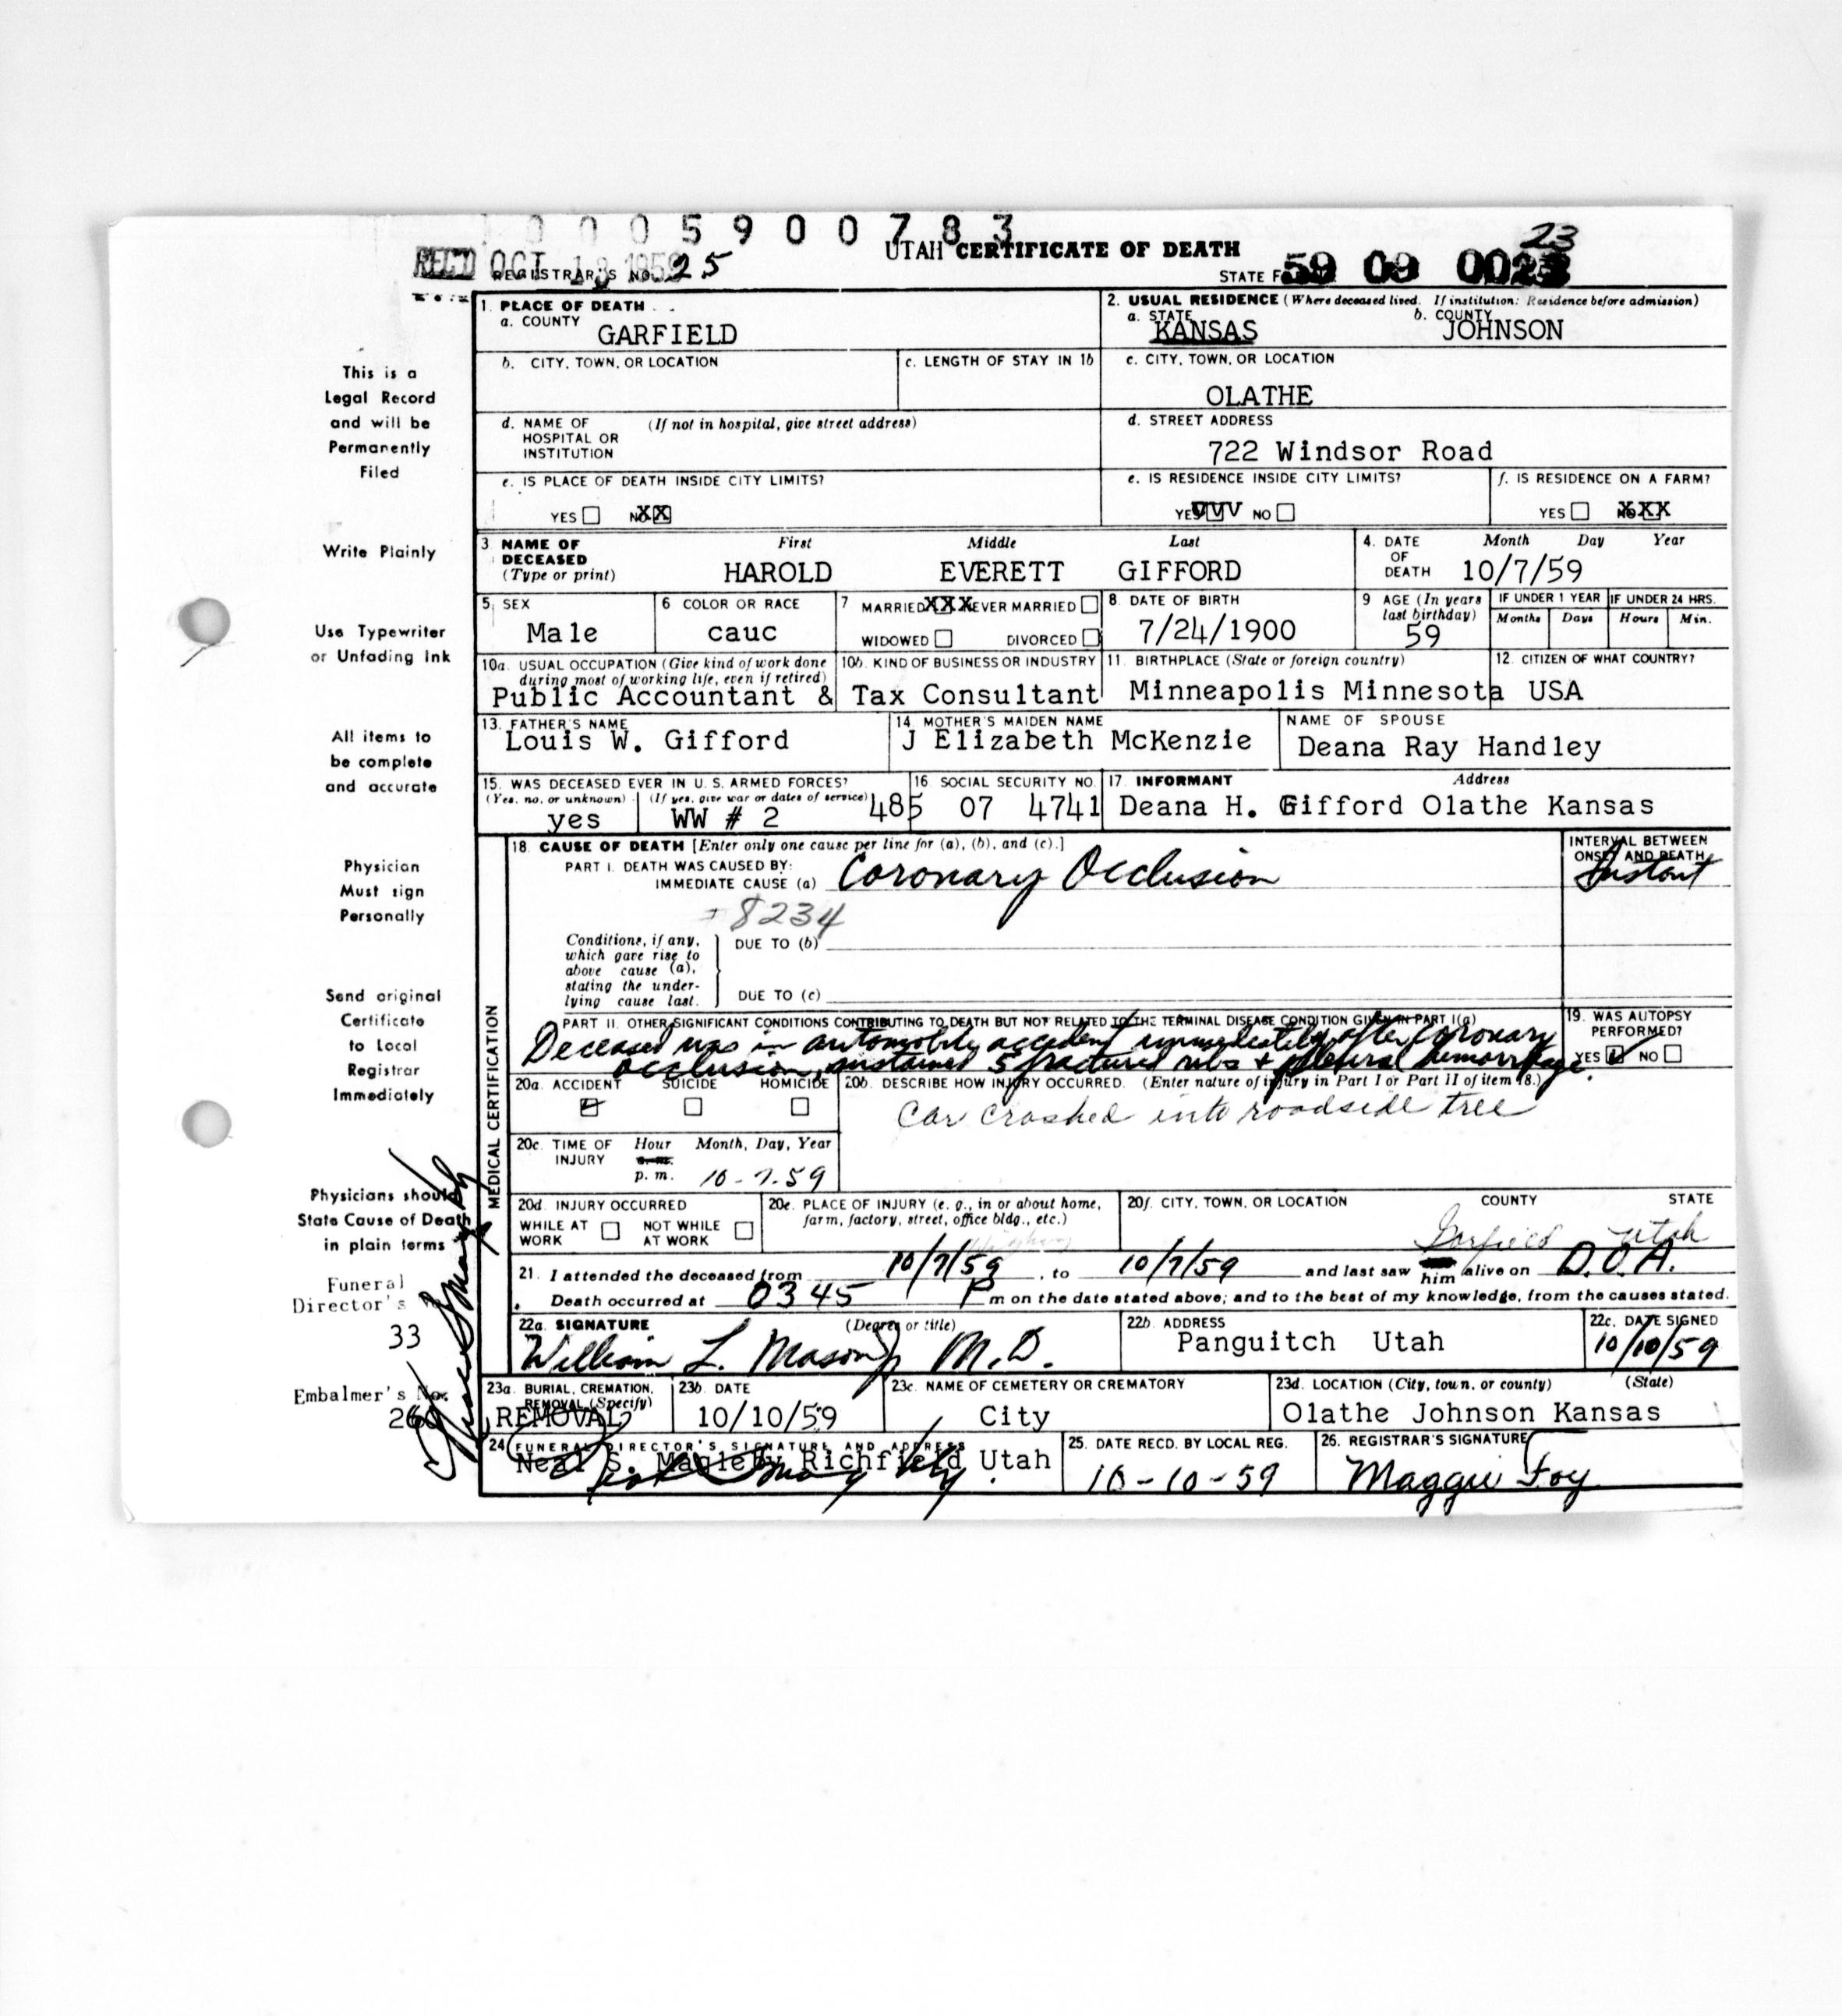 0 0 0 5 9 0 0 7 8 3
REC'D OCT 13 1959 REGISTRAR'S NO. 25
UTAH CERTIFICATE OF DEATH
23
STATE F 59 09 00
1. PLACE OF DEATH
a. COUNTY
GARFIELD
2. USUAL RESIDENCE (Where deceased lived. If institution: Residence before admission)
a. STATE b. COUNTY
KANSAS JOHNSON
b. CITY, TOWN, OR LOCATION
c. LENGTH OF STAY IN 1b
c. CITY, TOWN, OR LOCATION
OLATHE
d. NAME OF HOSPITAL OR INSTITUTION (If not in hospital, give street address)
d. STREET ADDRESS
722 Windsor Road
e. IS PLACE OF DEATH INSIDE CITY LIMITS?
YES NO XX
e. IS RESIDENCE INSIDE CITY LIMITS?
YES VVV NO
f. IS RESIDENCE ON A FARM?
YES NO XXX
3. NAME OF DECEASED (Type or print)
First Middle Last
HAROLD EVERETT GIFFORD
4. DATE OF DEATH Month Day Year
10/7/59
5. SEX
Male
6 COLOR OR RACE
cauc
7 MARRIED XXX NEVER MARRIED
WIDOWED DIVORCED
8. DATE OF BIRTH
7/24/1900
9 AGE (In years last birthday)
59
IF UNDER 1 YEAR
Months Days
IF UNDER 24 HRS.
Hours Min.
10a. USUAL OCCUPATION (Give kind of work done during most of working life, even if retired)
Public Accountant &
10b. KIND OF BUSINESS OR INDUSTRY
Tax Consultant
11. BIRTHPLACE (State or foreign country)
Minneapolis Minnesota
12. CITIZEN OF WHAT COUNTRY?
USA
13. FATHER'S NAME
Louis W. Gifford
14. MOTHER'S MAIDEN NAME
J Elizabeth McKenzie
NAME OF SPOUSE
Deana Ray Handley
15. WAS DECEASED EVER IN U. S. ARMED FORCES?
(Yes, no, or unknown) (If yes, give war or dates of service)
yes WW # 2
16 SOCIAL SECURITY NO.
485 07 4741
17. INFORMANT Address
Deana H. Gifford Olathe Kansas
MEDICAL CERTIFICATION
18. CAUSE OF DEATH [Enter only one cause per line for (a), (b), and (c).]
PART I. DEATH WAS CAUSED BY:
IMMEDIATE CAUSE (a) Coronary Occlusion
INTERVAL BETWEEN ONSET AND DEATH
Instant
8234
Conditions, if any, which gave rise to above cause (a), stating the underlying cause last.
DUE TO (b)
DUE TO (c)
PART II. OTHER SIGNIFICANT CONDITIONS CONTRIBUTING TO DEATH BUT NOT RELATED TO THE TERMINAL DISEASE CONDITION GIVEN IN PART I(a)
Deceased was in automobile accident immediately after coronary
occlusion, sustained 5 fractured ribs + pleural hemorrhage.
19. WAS AUTOPSY PERFORMED?
YES NO
20a. ACCIDENT SUICIDE HOMICIDE
20b. DESCRIBE HOW INJURY OCCURRED. (Enter nature of injury in Part I or Part II of item 18.)
Car crashed into roadside tree
20c. TIME OF INJURY Hour Month, Day, Year
a.m.
p. m. 10-7-59
20d. INJURY OCCURRED
WHILE AT WORK NOT WHILE AT WORK
20e. PLACE OF INJURY (e. g., in or about home, farm, factory, street, office bldg., etc.)
Highway
20f. CITY, TOWN, OR LOCATION COUNTY STATE
Garfield Utah
21. I attended the deceased from 10/7/59, to 10/7/59 and last saw him alive on D.O.A.
Death occurred at 0345 P m on the date stated above; and to the best of my knowledge, from the causes stated.
22a. SIGNATURE (Degree or title)
William L. Mason Jr M.D.
22b. ADDRESS
Panguitch Utah
22c. DATE SIGNED
10/10/59
23a. BURIAL, CREMATION, REMOVAL (Specify)
REMOVAL
23b. DATE
10/10/59
23c. NAME OF CEMETERY OR CREMATORY
City
23d. LOCATION (City, town, or county) (State)
Olathe Johnson Kansas
24 FUNERAL DIRECTOR'S SIGNATURE AND ADDRESS
Neal S. Magleby Richfield Utah
25. DATE RECD. BY LOCAL REG.
10-10-59
26. REGISTRAR'S SIGNATURE
Maggie Foy
This is a
Legal Record
and will be
Permanently
Filed
Write Plainly
Use Typewriter
or Unfading Ink
All items to
be complete
and accurate
Physician
Must sign
Personally
Send original
Certificate
to Local
Registrar
Immediately
Physicians should
State Cause of Death
in plain terms
Funeral
Director's No.
33
Embalmer's No.